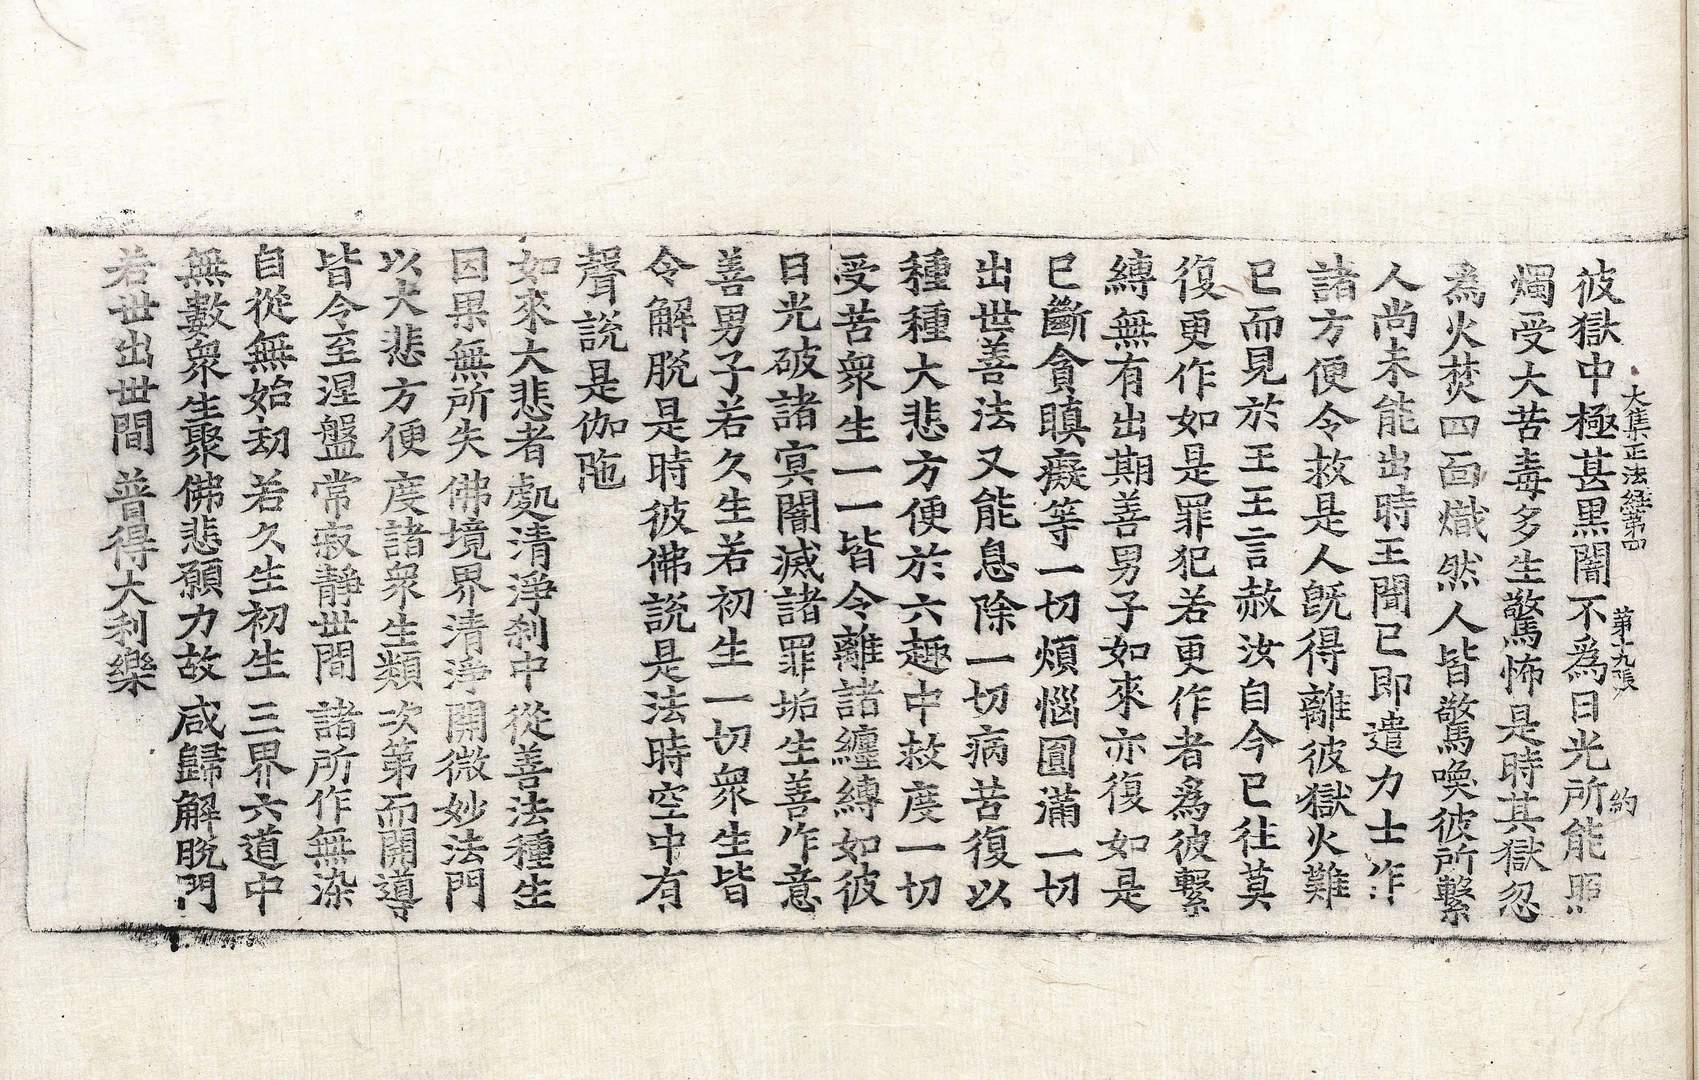 大集正法經第四　第十九張　約
彼獄中極甚黒闇不為日光所能照
燭受大苦毒多生驚怖是時其獄忽
爲火焚四面熾然人皆驚喚彼所繫
人尚未能出時王聞已即遣力士作
諸方便令救是人旣得離彼獄火難
已而見於王王言赦汝自今已往莫
復更作如是罪犯若更作者爲彼繫
縛無有出期善男子如來亦復如是
已斷貪瞋癡等一切煩惱圓滿一切
出世善法又能息除一切病苦復以
種種大悲方便於六趣中救度一切
受苦衆生一一皆令離諸纏縛如彼
日光破諸冥闇滅諸罪垢生善作意
善男子若久生若初生一切衆生皆
令解脫是時彼佛說是法時空中有
聲說是伽陁
如來大悲者 處清淨刹中 從善法種生
因果無所失 佛境界清淨 開微妙法門
以大悲方便 度諸衆生類 次第而開導
皆令至涅盤 常寂靜世間 諸所作無染
自從無始劫 若久生初生 三界六道中
無數衆生聚 佛悲願力故 咸歸解脫門
若世出世間 普得大利樂